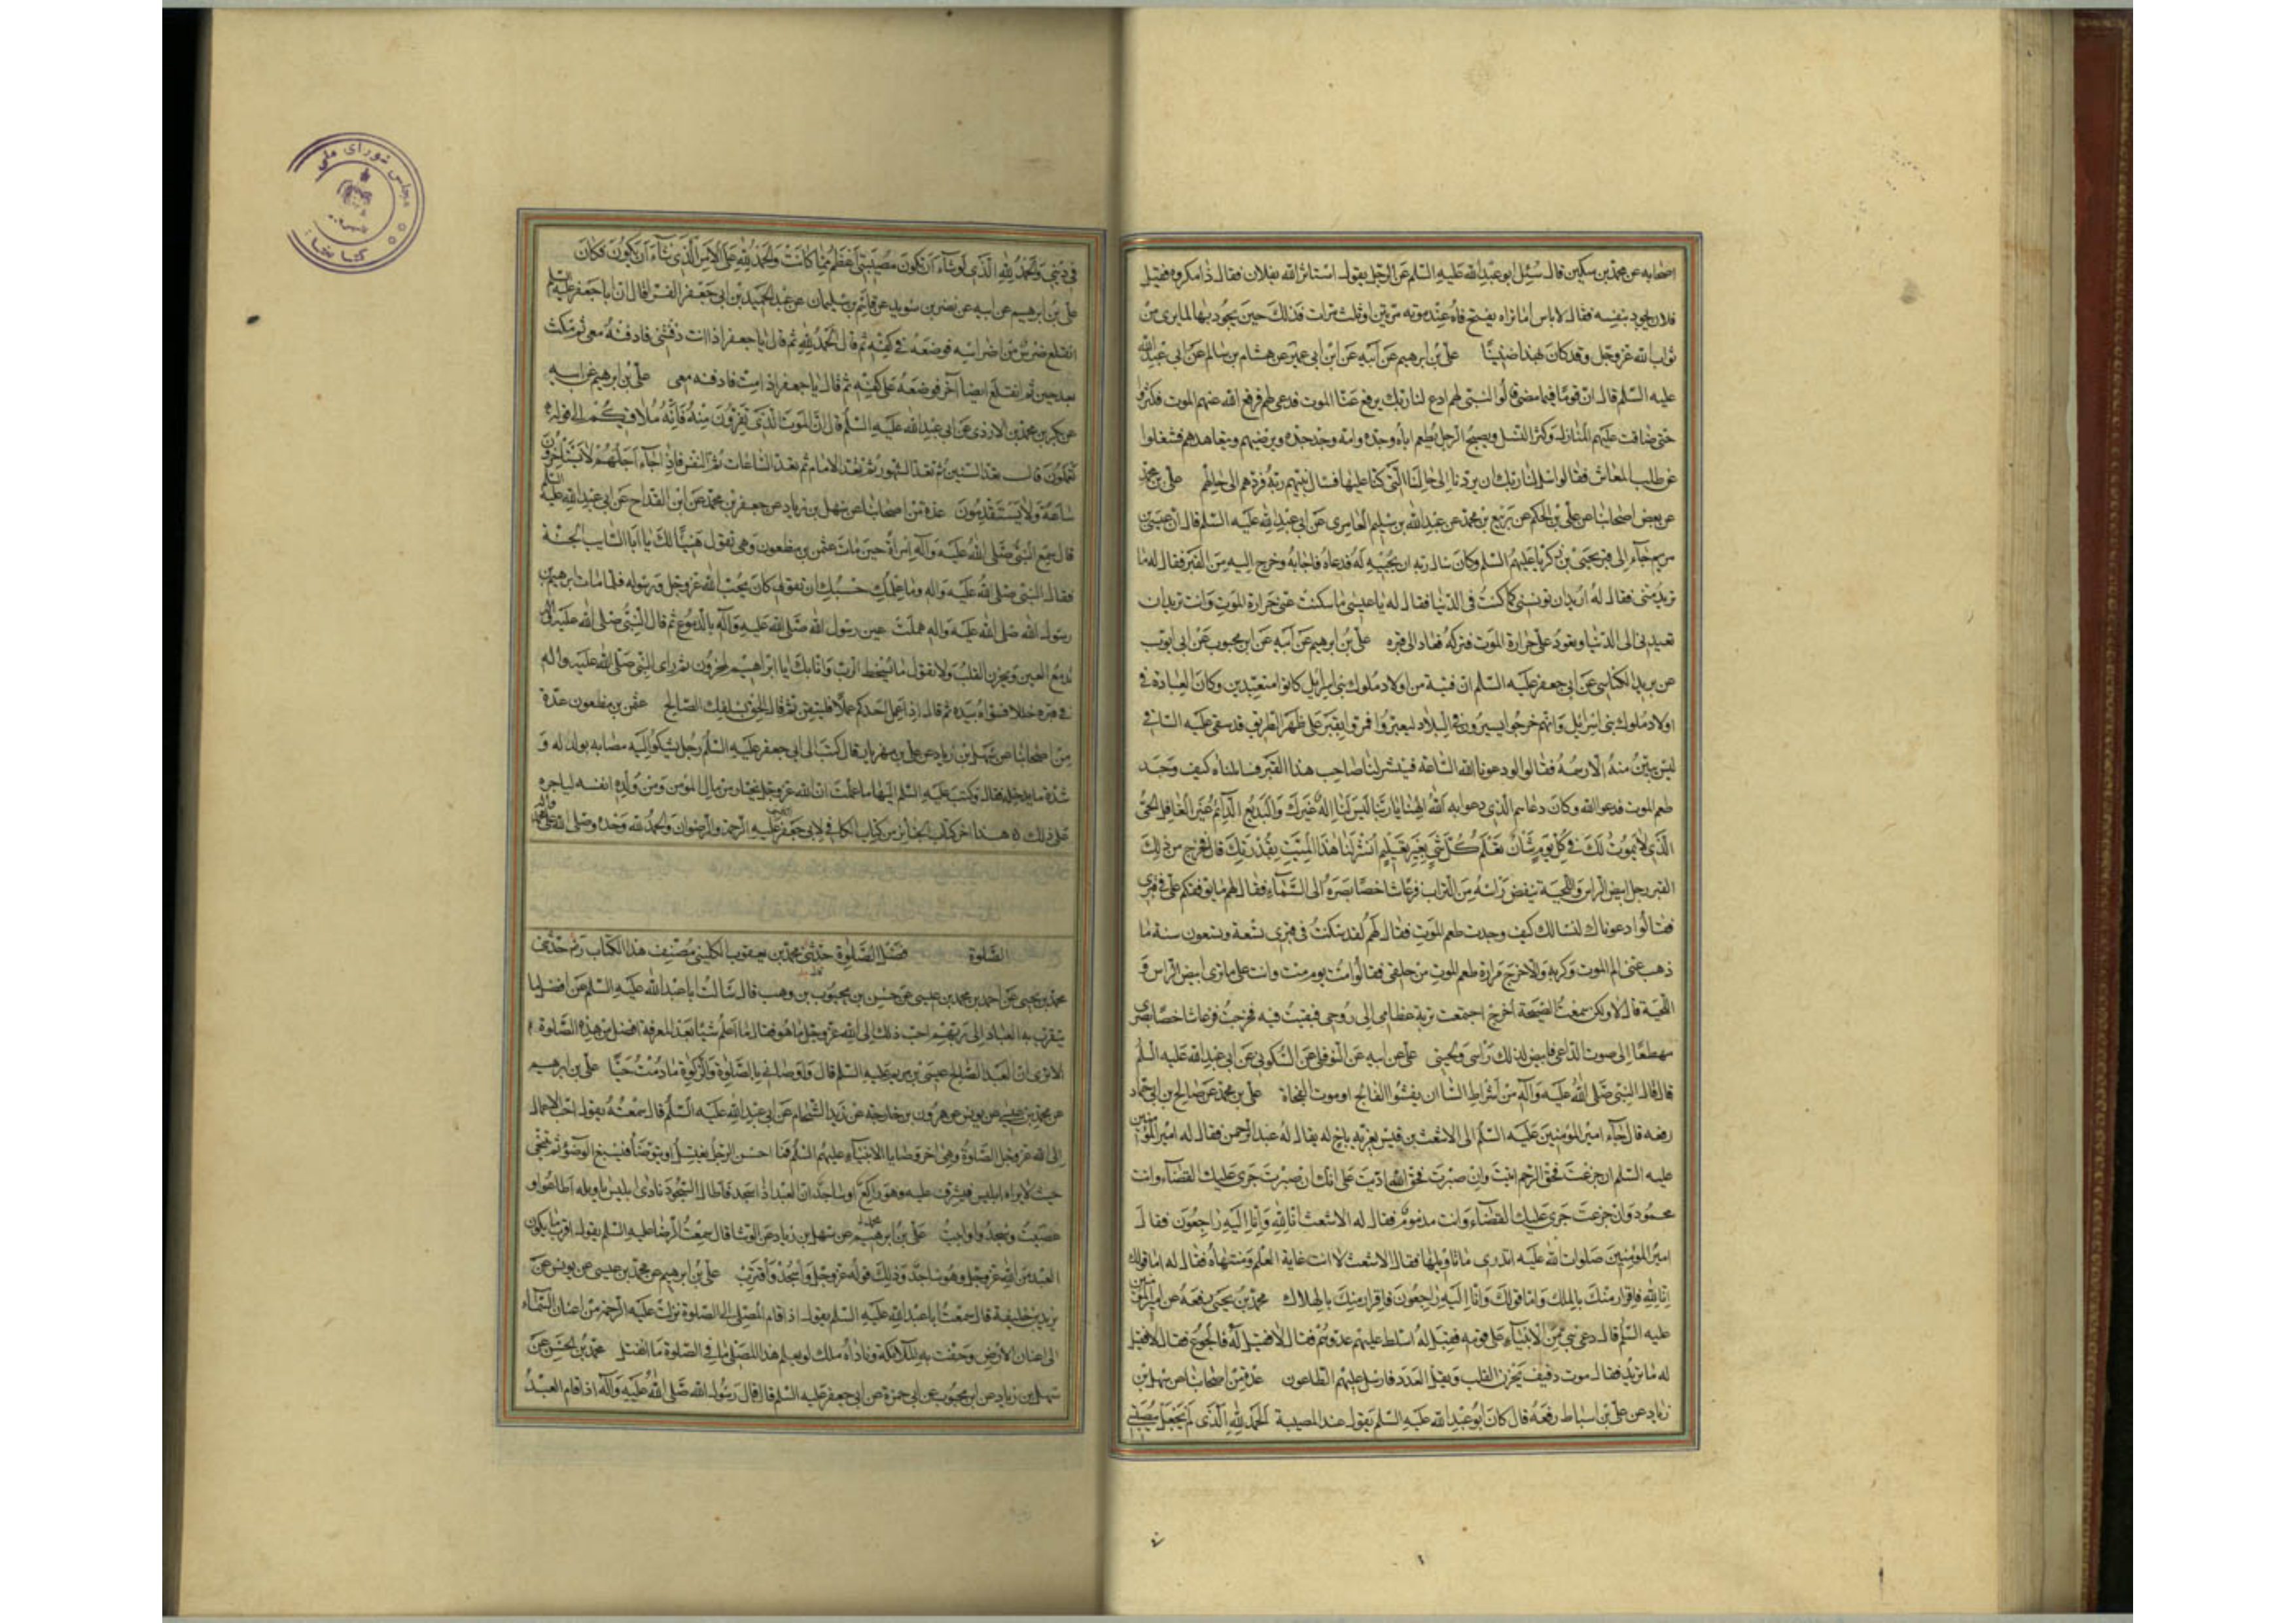 اصحابه عن محمد بن سكين قال سئل ابو عبد الله عليه السلم عن الرجل يقول استاثر الله بفلان فقال ذا مكروه فقيل
فلان يجود بنفسه فقال لاباس اما تراه يفتح فاه عند موته مرتين او ثلث مرات فذلك حين يجود بها لما يرى من
ثواب الله عز وجل وقد كان بهذا ضنينا على بن ابرهيم عن ابيه عن ابن ابى عمير عن هشام بن سالم عن ابى عبد الله
عليه السلم قال ان قوما فيما مضى قالوا لنبى لهم ادع لنا ربك يرفع عنا الموت فدعى لهم فرفع الله عنهم الموت فكثروا
حتى ضاقت عليهم المنازل وكثر النسل ويصبح الرجل يطعم اباه وجده وامه وجد جده ويرضيهم ويتعاهدهم فشغلوا
عن طلب المعاش فقالوا سل لنا ربك ان يردنا الى حالنا التى كنا عليها فسال نبيهم ربه فردهم الى حالهم على بن محمد
عن بعض اصحابنا عن على بن الحكم عن ربيع بن محمد عن عبد الله بن سليم العامرى عن ابى عبد الله عليه السلم قال ان عيسى بن
مريم جاء الى قبر يحيى بن زكريا عليهم السلم وكان سال ربه ان يحييه له فدعاه فاجابه وخرج اليه من القبر فقال له ما
تريد منى فقال له اريد ان تونسنى كما كنت فى الدنيا فقال له يا عيسى ما سكنت عنى حرارة الموت وانت تريد ان
تعيدنى الى الدنيا وتعود على حرارة الموت فتركه فعاد الى قبره على بن ابرهيم عن ابيه عن ابن محبوب عن ابى ايوب
عن يزيد الكناسى عن ابى جعفر عليه السلم ان فتية من اولاد ملوك بنى اسرائيل كانوا متعبدين وكانت العبادة فى
اولاد ملوك بنى اسرائيل وانهم خرجوا يسيرون فى البلاد ليعتبروا فمروا بقبر على ظهر الطريق قد سفى عليه السافى
ليس يبين منه الا رسمه فقالوا لو دعونا الله الساعة فينشر لنا صاحب هذا القبر فسالناه كيف وجد
طعم الموت فدعوا الله وكان دعاءهم الذى دعوا به الله الهنا يا ربنا ليس لنا اله غيرك والبديع الدائم غير الغافل الحى
الذى لا يموت لك فى كل يوم شان تعلم كل شى بغير تعليم انشر لنا هذا الميت بقدرتك قال فخرج من ذلك
القبر رجل ابيض الراس واللحية ينفض راسه من التراب فزعا شاخصا بصره الى السماء فقال لهم ما يوقفكم على قبرى
فقالوا دعوناك لنسالك كيف وجدت طعم الموت فقال لهم لقد سكنت فى قبرى تسعة وتسعون سنة ما
ذهب عنى الم الموت وكربه ولا خرج مرارة طعم الموت من حلقى فقالوا مت يوم مت وانت على ما نرى ابيض الراس و
اللحية قال لا ولكن سمعت الصيحة اخرج اجتمعت تربة عظامى الى روحى فبقيت فيه فخرجت فزعا شاخصا بصرى
مهطعا الى صوت الداعى فابيض لذلك راسى ولحيتى على عن ابيه عن النوفلى عن السكونى عن ابى عبد الله عليه السلم
قال قال النبى صلى الله عليه وآله من اشراط الساعة ان يفشوا الفالج او موت الفجاة على بن محمد عن صالح بن ابى حماد
رفعه قال جاء امير المؤمنين عليه السلم الى الاشعث بن قيس يعزيه باخ له يقال له عبد الرحمن فقال له امير المؤمنين
عليه السلم ان جزعت فحق الرحم اتيت وان صبرت فحق الله اديت على انك ان صبرت جرى عليك القضاء وانت
محمود وان جزعت جرى عليك القضاء وانت مذموم فقال له الاشعث انا لله وانا اليه راجعون فقال
امير المؤمنين صلوات الله عليه اتدرى ما تاويلها فقال الاشعث لا انت غاية العلم ومنتهاه فقال له اما قولك
انا لله فاقرار منك بالملك واما قولك وانا اليه راجعون فاقرار منك بالهلاك محمد بن يحيى رفعه عن امير المؤمنين
عليه السلم قال دعى نبى من الانبياء على قومه فقيل له اسلط عليهم عدوهم فقال لا فقيل له فالجوع فقال لا فقيل
له ما تريد فقال موت دفيف يحزن القلب ويقل العدد فارسل عليهم الطاعون عدة من اصحابنا عن سهل بن
زياد عن على بن اسباط رفعه قال كان ابو عبد الله عليه السلم يقول عند المصيبة الحمد لله الذى لم يجعل مصيبتى
فى دينى والحمد لله الذى لو شاء ان تكون مصيبتى اعظم مما كانت والحمد لله على الامر الذى شاء ان يكون فكان
على بن ابرهيم عن ابيه عن نضر بن سويد عن قاسم بن سليمان عن عبد الحميد بن ابى جعفر الفراء قال ان ابا جعفر عليه السلم
انقلع ضرس من اضراسه فوضعه فى كفه ثم قال الحمد لله ثم قال يا جعفر اذا انت دفنتنى فادفنه معى ثم مكث
بعد حين ثم انقلع ايضا آخر فوضعه على كفه ثم قال يا جعفر اذا مت فادفنه معى على بن ابرهيم عن ابيه
عن بكر بن محمد بن الازدى عن ابى عبد الله عليه السلم قال ان الموت الذى تفرون منه فانه ملاقيكم الى قوله
تعملون قال تعد السنين ثم تعد الشهور ثم تعد الايام ثم تعد الساعات ثم النفس فاذا جاء اجلهم لا يستاخرون
ساعة ولا يستقدمون عدة من اصحابنا عن سهل بن زياد عن جعفر بن محمد عن ابن القداح عن ابى عبد الله عليه السلم
قال سمع النبى صلى الله عليه وآله امراة حين مات عثمن بن مظعون وهى تقول هنيئا لك يا ابا السايب الجنة
فقال النبى صلى الله عليه وآله وما علمك حسبك ان تقولى كان يحب الله عز وجل ورسوله فلما مات ابرهيم بن
رسول الله صلى الله عليه وآله هملت عين رسول الله صلى الله عليه وآله بالدموع ثم قال النبى صلى الله عليه وآله
تدمع العين ويحزن القلب ولا نقول ما يسخط الرب وانا بك يا ابراهيم لمحزونون ثم راى النبى صلى الله عليه وآله
فى قبره خللا فسواه بيده ثم قال اذا عمل احدكم عملا فليتقن ثم قال الحق بسلفك الصالح عثمن بن مظعون عدة
من اصحابنا عن سهل بن زياد عن على بن مهزيار قال كتب الى ابى جعفر عليه السلم رجل يشكو اليه مصابه بولد له و
شدة ما يدخله فقال وكتب عليه السلم اليه اما علمت ان الله عز وجل يختار من مال المؤمن ومن ولده انفسه لياجره
على ذلك هذا اخر كتاب الجنائز من كتاب الكافى لابى جعفر عليه الرحمة والرضوان والحمد لله وحده وصلى الله على
الصلوة فضل الصلوة حدثنى محمد بن يعقوب الكلينى مصنف هذا الكتاب ره حدثنى
محمد بن يحيى عن احمد بن محمد بن عيسى عن حسن بن محبوب بن وهب قال سالت ابا عبد الله عليه السلم عن افضل ما
يتقرب به العباد الى ربهم احب ذلك الى الله عز وجل ما هو فقال ما اعلم شيئا بعد المعرفة افضل من هذه الصلوة
الا ترى ان العبد الصالح عيسى بن مريم عليه السلم قال واوصانى بالصلوة والزكوة ما دمت حيا على بن ابرهيم
عن محمد بن عيسى عن يونس عن هرون بن خارجه عن زيد الشحام عن ابى عبد الله عليه السلم قال سمعته يقول احب الاعمال
الى الله عز وجل الصلوة وهى اخر وصايا الانبياء عليهم السلم فما احسن الرجل يغتسل او يتوضا فيسبغ الوضوء ثم يتنحى
حيث لا يراه ابليس فيشرف عليه وهو راكع او ساجد ان العبد اذا سجد فاطال السجود نادى ابليس يا ويله اطاعوا و
عصيت وسجدوا وابيت على بن ابرهيم عن سهل بن زياد عن الوشا قال سمعت الرضا عليه السلم يقول اقرب ما يكون
العبد من الله عز وجل وهو ساجد وذلك قوله عز وجل واسجد واقترب على بن ابرهيم عن محمد بن عيسى عن يونس عن
يزيد بن خليفة قال سمعت ابا عبد الله عليه السلم يقول اذا قام المصلى الى الصلوة نزلت عليه الرحمة من اعنان السماء
الى اعنان الارض وحفت به الملائكة وناداه ملك لو يعلم هذا المصلى ما فى الصلوة ما انفتل محمد بن الحسن عن
سهل بن زياد عن ابن محبوب عن ابى حمزة عن ابى جعفر عليه السلم قال قال رسول الله صلى الله عليه وآله اذا قام العبد
مجلس شوراى ملى
كتابخانه